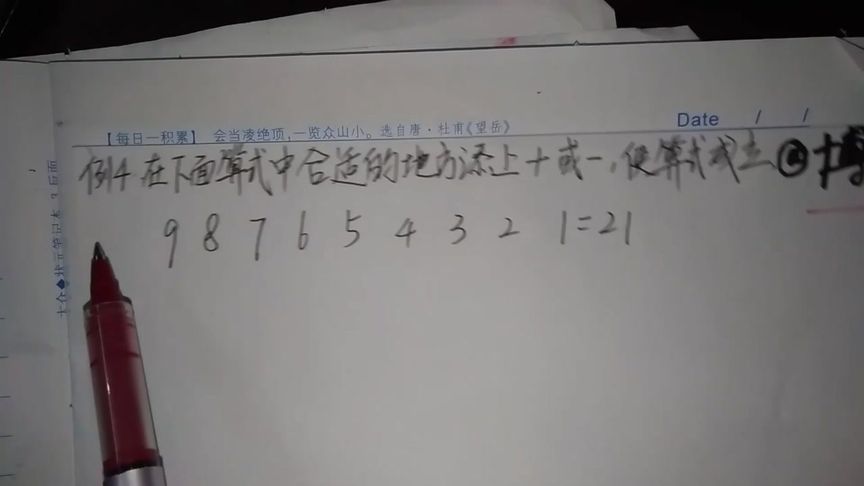 Date / /
【每日一积累】 会当凌绝顶,一览众山小。选自唐·杜甫《望岳》
例4 在下面算式中合适的地方添上+或-,使算式成立
9 8 7 6 5 4 3 2 1=21